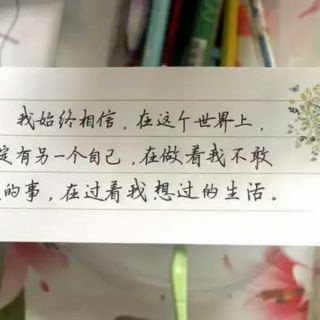 我始终相信，在这个世界上，
定有另一个自己，在做着我不敢
的事，在过着我想过的生活。